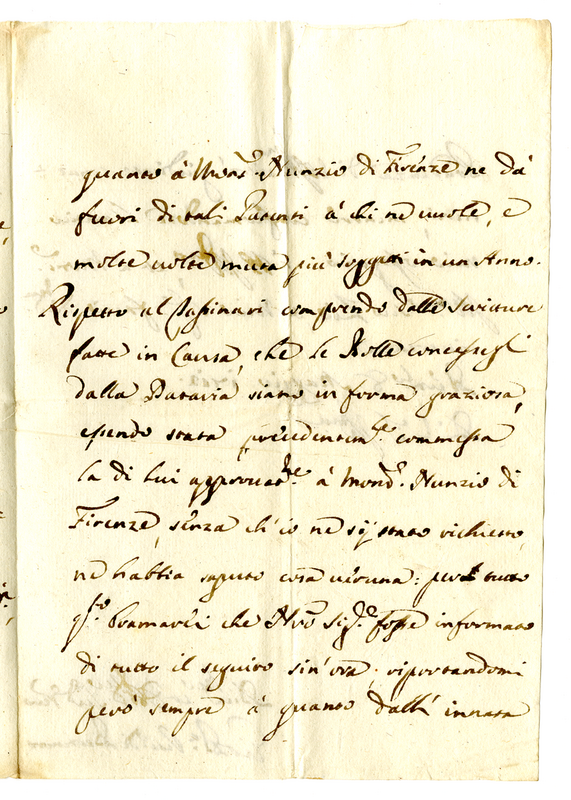 quanto à Mons.r Nunzio di Firenze ne dà
fuori di tali Patenti à chi ne vuole, e
molte volte muta più soggetti in un Anno.
Rispetto al Passinari comprendo dalle Scritture
fatte in Causa, che le Bolle concessegli
dalla Dataria siano in forma graziosa,
essendo stata precedentem.te commessa
la di lui approvat.ne à Mons.r Nunzio di
Firenze, senza ch'io ne sij stato richiesto,
ne habbia saputo cosa veruna: però tutto
q.to bramarei che N'ro Sig.re fosse informato
di tutto il seguito sin'ora, riportandomi
però sempre à quanto dall' innata